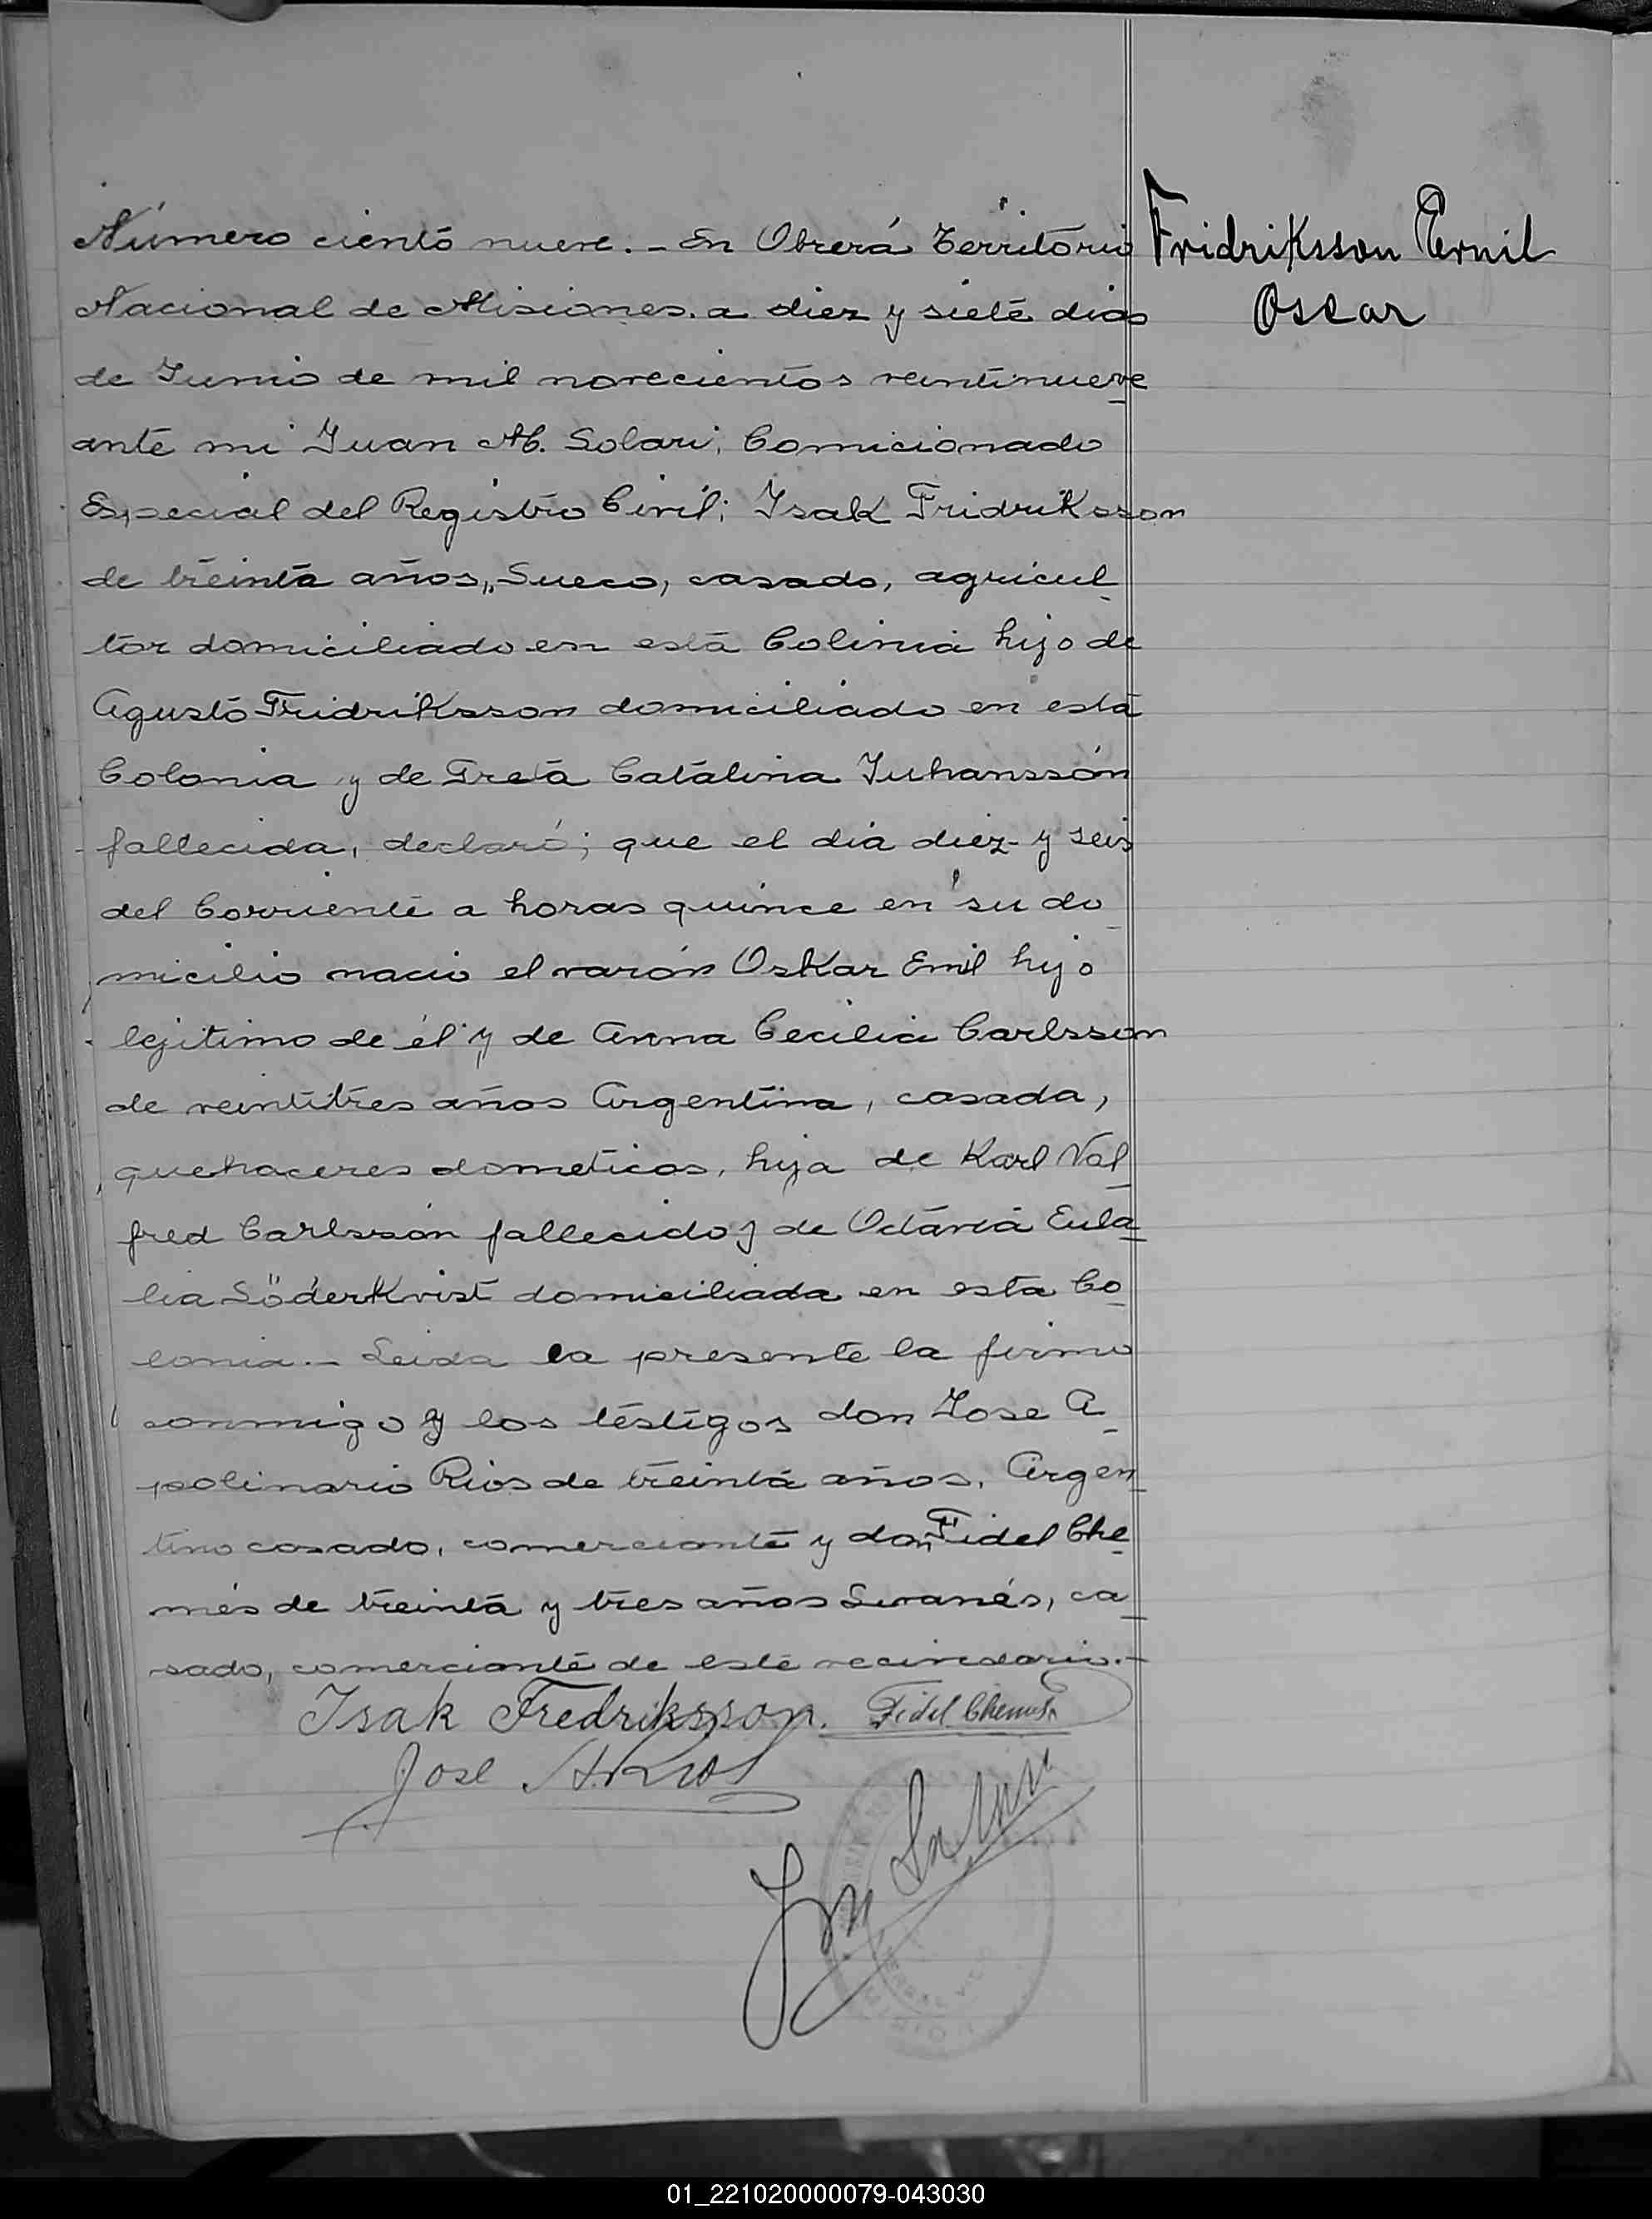 Número ciento nueve. - En Oberá Territorio
Nacional de Misiones. a diez y siete dias
de Junio de mil novecientos veintinueve
ante mi Juan M. Solari, Comicionado
Especial del Registro Civil; Isak Fridriksson
de treinta años, Sueco, casado, agricul
tor domiciliado en esta Colinia hijo de
Agusto Fridriksson domiciliado en esta
Colonia y de Greta Catalina Juhansson
fallecida, declaró; que el dia diez y seis
del Corriente a horas quince en su do
micilio nacio el varón Oskar Emil hijo
legitimo de él y de Anna Cecilia Carlsson
de veintitres años Argentina, casada,
quehaceres dometicos, hija de Karl Val
fred Carlsson fallecido y de Octavia Eula
lia Söderkvist domiciliada en esta Co
lonia. - Leida la presente la firmo
conmigo y los testigos don Jose A
polinario Rios de treinta años, Argen
tino casado, comerciante y don Fidel Che
més de treinta y tres años Livanés, ca
sado, comerciante de este vecindario. -
Isak Fredriksson. Fidel Chemes
Jose A. Rios
J M Solari
Fridriksson Emil
Oscar
01_221020000079-043030